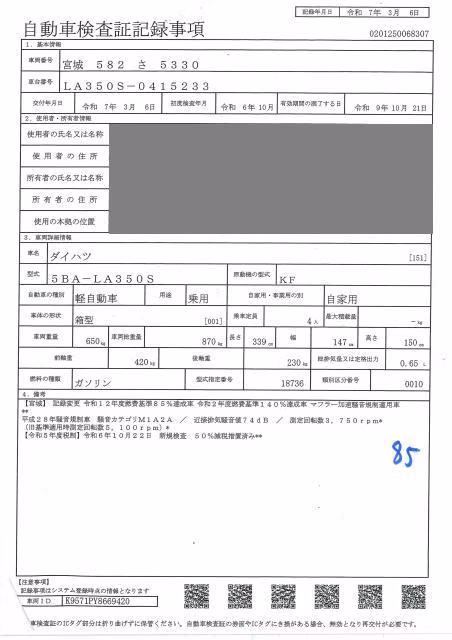 記録年月日 令和 7年 3月 6日
自動車検査証記録事項
0201250068307
1．基本情報
車両番号 宮城 582 さ 5330
車台番号 LA350S-0415233
交付年月日 令和 7年 3月 6日 初度検査年月 令和 6年10月 有効期間の満了する日 令和 9年10月 21日
2．使用者・所有者情報
使用者の氏名又は名称
使用者の住所
所有者の氏名又は名称
所有者の住所
使用の本拠の位置
3．車両詳細情報
車名 ダイハツ [151]
型式 5BA-LA350S 原動機の型式 KF
自動車の種別 軽自動車 用途 乗用 自家用・事業用の別 自家用
車体の形状 箱型 [001] 乗車定員 4人 最大積載量 -kg
車両重量 650kg 車両総重量 870kg 長さ 339cm 幅 147cm 高さ 150cm
前軸重 420kg 後軸重 230kg 総排気量又は定格出力 0.65 L
燃料の種類 ガソリン 型式指定番号 18736 類別区分番号 0010
4．備考
【宮城】 記録変更 令和12年度燃費基準85％達成車 令和2年度燃費基準140％達成車 マフラー加速騒音規制適用車
**
平成28年騒音規制車 騒音カテゴリM1A2A ／ 近接排気騒音値74dB ／ 測定回転数3，750rpm*
(旧基準適用時測定回転数5，100rpm)*
【令和5年度税制】令和6年10月22日 新規検査 50％減税措置済み**
85
【注意事項】
記録事項はシステム登録時点の情報となります
車両ID K9571PY8669420
車検証のICタグ部分は折り曲げずに保管ください。自動車検査証の券面やICタグにき損がある場合、無効となり再交付が必要です。